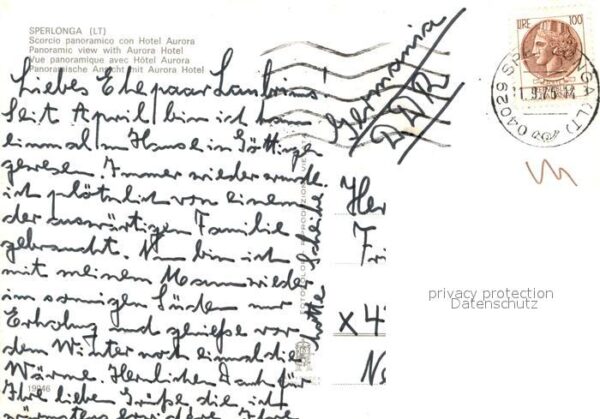 SPERLONGA (LT)
Scorcio panoramico con Hotel Aurora
Panoramic view with Aurora Hotel
Vue panoramique avec Hôtel Aurora
Panoramische Ansicht mit Aurora Hotel
Liebes Ehepaar
Seit April bin ich kaum
einmal im Hause in Göttingen
gewesen. Immer wieder wurde
ich plötzlich von einem
der auswärtigen Familie
gebraucht. Nun bin ich
mit meinem Mann wieder
im sonnigen Süden zur
Erholung und genieße vor
dem Winter noch einmal die
Wärme. Herzlichen Dank für
Ihre lieben Grüße, die ich
Ihre
19046
Germania
DDR
LIRE 100
04029 SPERLONGA (LT)
11.9.75
Her
Fri
x 47
privacy protection
Datenschutz